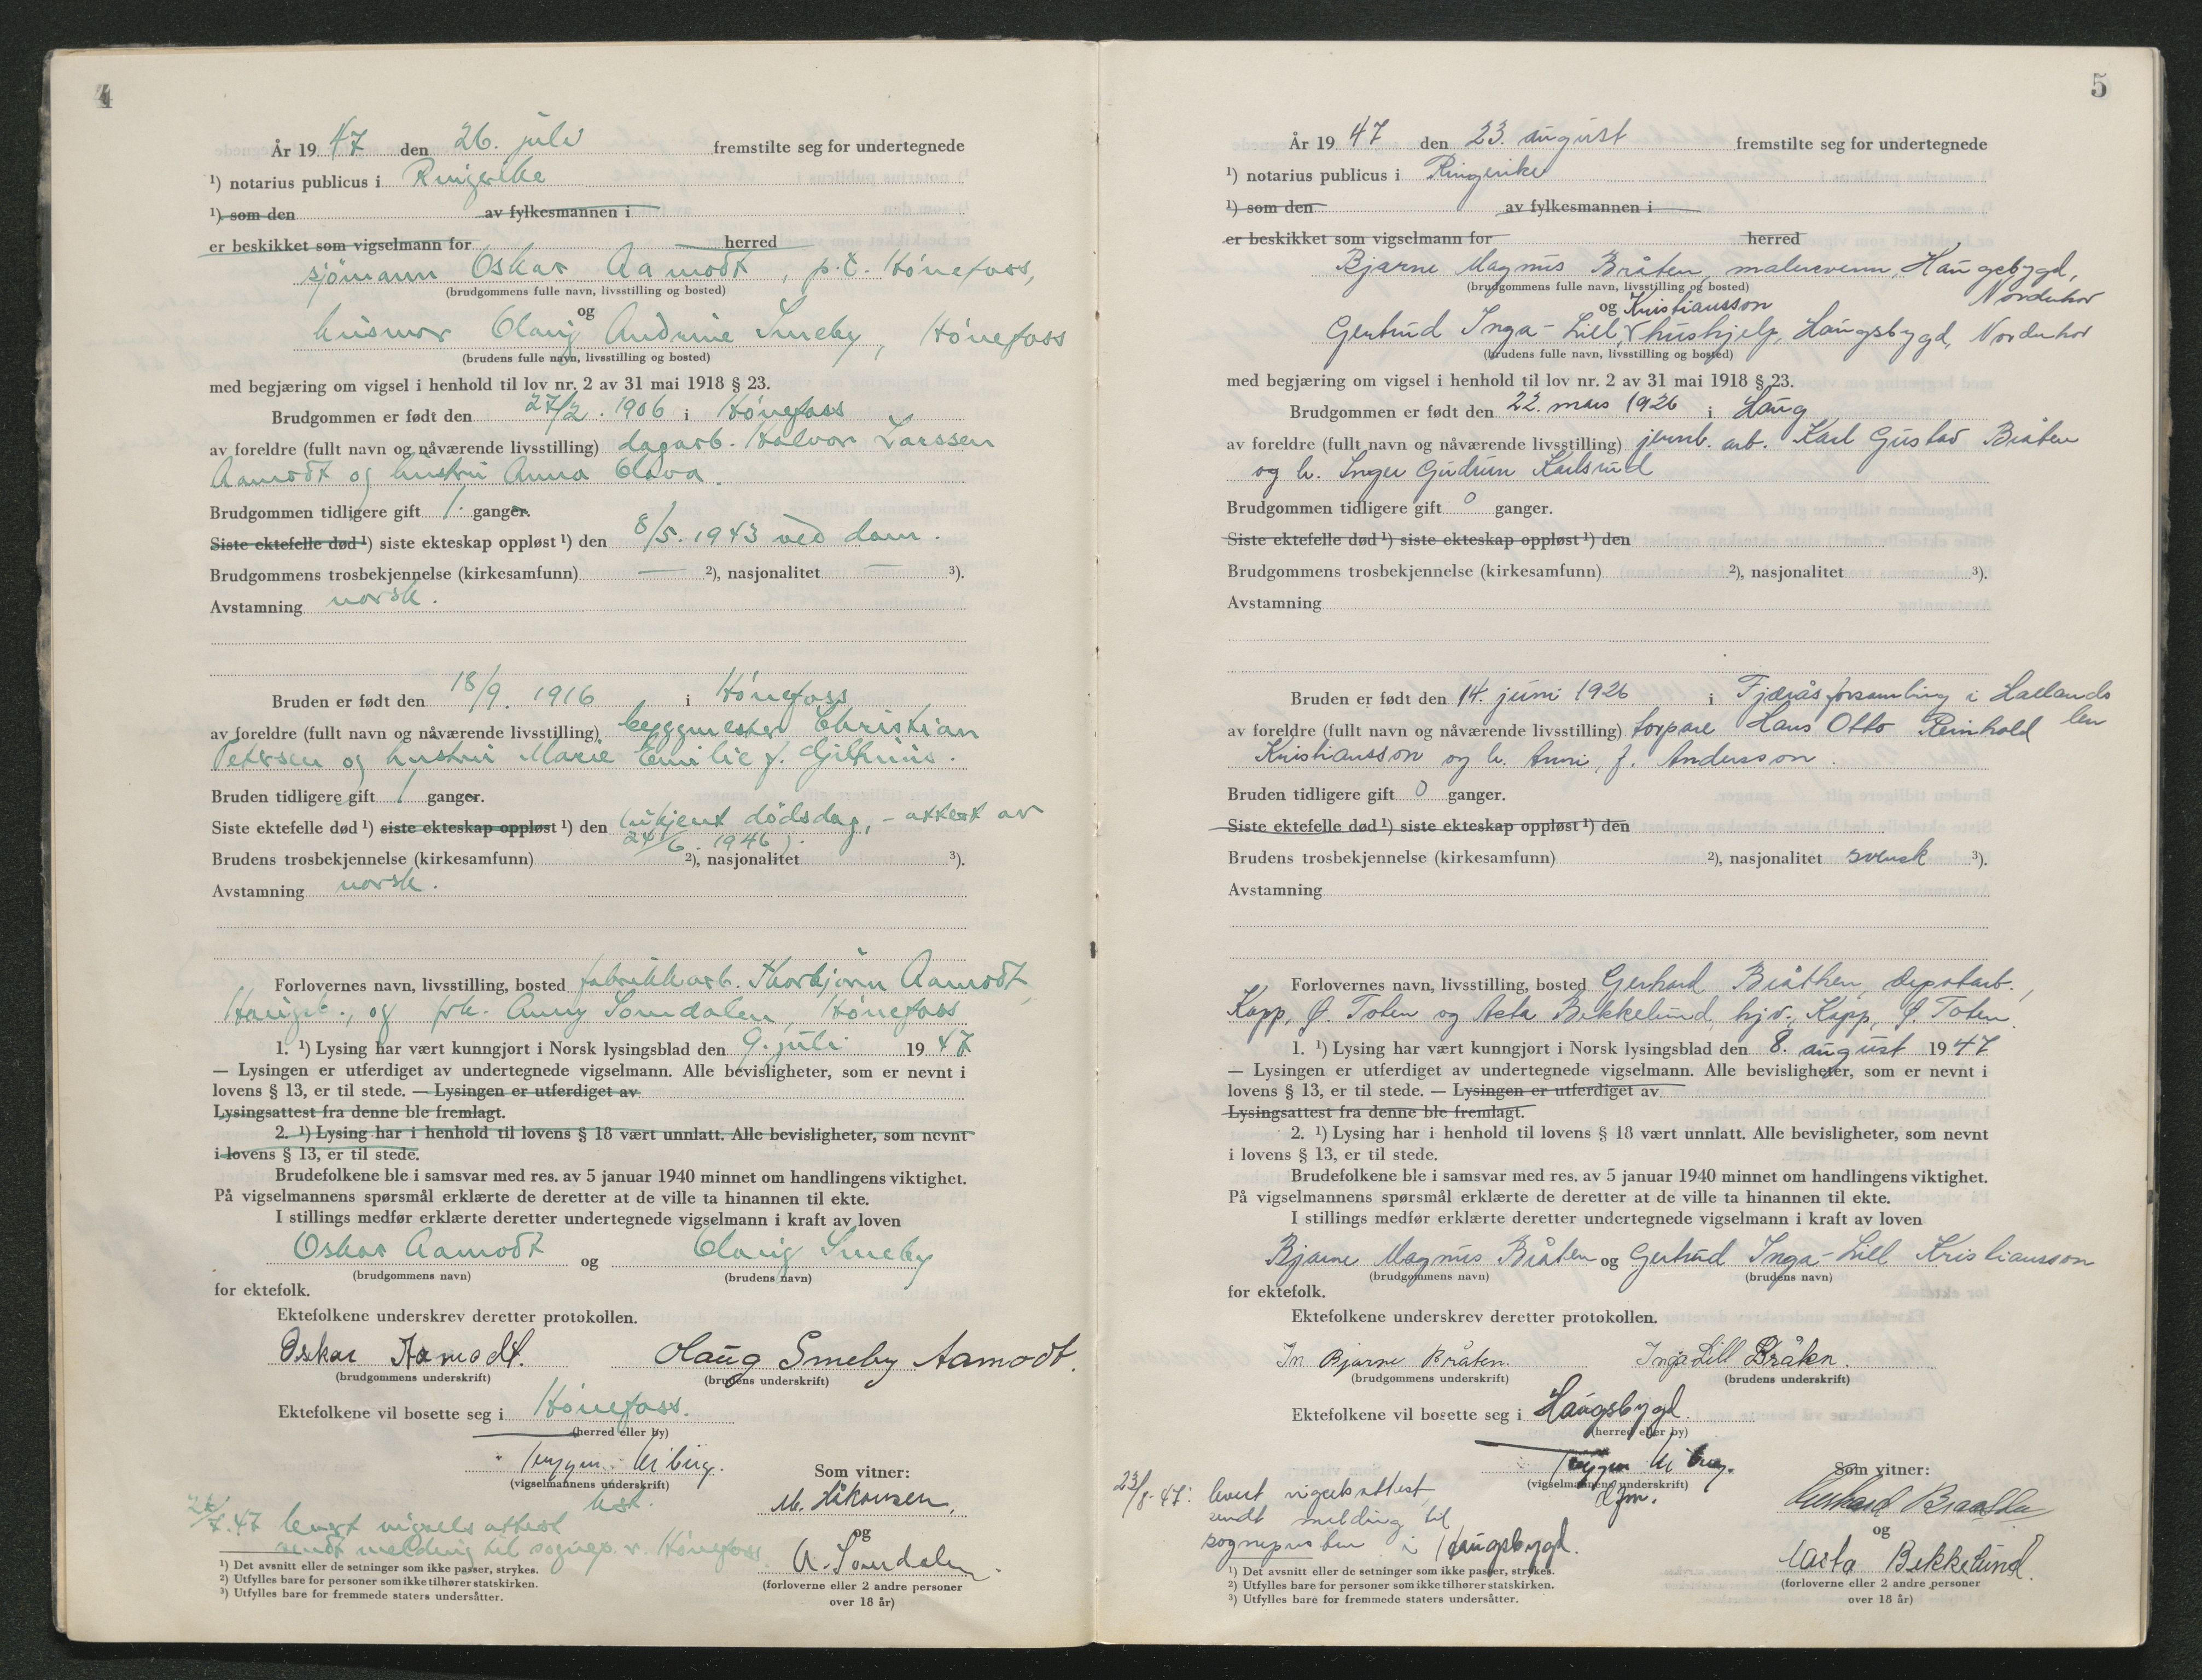 4
År 1947 den 26. juli fremstilte seg for undertegnede
¹) notarius publicus i Ringerike
¹) som den av fylkesmannen i
er beskikket som vigselmann for herred
sjömann Oskar Aamodt, p.t. Hönefoss,
(brudgommens fulle navn, livsstilling og bosted)
og
husmor Olaug Andrine Smeby, Hönefoss
(brudens fulle navn, livsstilling og bosted)
med begjæring om vigsel i henhold til lov nr. 2 av 31 mai 1918 § 23.
Brudgommen er født den 27/2. 1906 i Hönefoss
av foreldre (fullt navn og nåværende livsstilling) dagarb. Halvor Larssen
Aamodt og hustru Anna Olava.
Brudgommen tidligere gift 1. ganger.
Siste ektefelle død ¹) siste ekteskap oppløst ¹) den 8/5. 1943 ved dom.
Brudgommens trosbekjennelse (kirkesamfunn) — ²), nasjonalitet — ³).
Avstamning norsk.
Bruden er født den 18/9. 1916 i Hönefoss
av foreldre (fullt navn og nåværende livsstilling) byggmester Christian
Petersen og hustru Marie Emilie f. Gilhuus.
Bruden tidligere gift 1 ganger.
Siste ektefelle død ¹) siste ekteskap oppløst ¹) den (ukjent dödsdag, - attest av
24/6. 1946).
Brudens trosbekjennelse (kirkesamfunn) ²), nasjonalitet ³).
Avstamning norsk.
Forlovernes navn, livsstilling, bosted fabrikkarb. Thorbjörn Aamodt,
Haugsb., og frk. Anny Somdalen, Hönefoss
1. ¹) Lysing har vært kunngjort i Norsk lysingsblad den 9. juli 1947
— Lysingen er utferdiget av undertegnede vigselmann. Alle bevisligheter, som er nevnt i
lovens § 13, er til stede. — Lysingen er utferdiget av
Lysingsattest fra denne ble fremlagt.
2. ¹) Lysing har i henhold til lovens § 18 vært unnlatt. Alle bevisligheter, som nevnt
i lovens § 13, er til stede.
Brudefolkene ble i samsvar med res. av 5 januar 1940 minnet om handlingens viktighet.
På vigselmannens spørsmål erklærte de deretter at de ville ta hinannen til ekte.
I stillings medfør erklærte deretter undertegnede vigselmann i kraft av loven
Oskar Aamodt og Olaug Smeby
(brudgommens navn) (brudens navn)
for ektefolk.
Ektefolkene underskrev deretter protokollen.
Oskar Aamodt. Olaug Smeby Aamodt.
(brudgommens underskrift) (brudens underskrift)
Ektefolkene vil bosette seg i Hönefoss.
(herred eller by)
(vigselmannens underskrift)
Som vitner:
M. Håkonsen.
og
A. Somdalen.
(forloverne eller 2 andre personer
over 18 år)
26/7.47 levert vigselsattest
sendt melding til sognep. i Hönefoss
¹) Det avsnitt eller de setninger som ikke passer, strykes.
²) Utfylles bare for personer som ikke tilhører statskirken.
³) Utfylles bare for fremmede staters undersåtter.
5
År 1947 den 23. august fremstilte seg for undertegnede
¹) notarius publicus i Ringerike
¹) som den av fylkesmannen i
er beskikket som vigselmann for herred
Bjarne Magnus Bråten, malersvenn, Haugsbygd,
Norderhov
(brudgommens fulle navn, livsstilling og bosted)
og Kristiansson
Gertrud Inga-Lill, v hushjelp, Haugsbygd, Norderhov
(brudens fulle navn, livsstilling og bosted)
med begjæring om vigsel i henhold til lov nr. 2 av 31 mai 1918 § 23.
Brudgommen er født den 22. mars 1926 i Haug
av foreldre (fullt navn og nåværende livsstilling) jernb. arb. Karl Gustav Bråten
og h. Inger Gudrun Karlsrud
Brudgommen tidligere gift 0 ganger.
Siste ektefelle død ¹) siste ekteskap oppløst ¹) den
Brudgommens trosbekjennelse (kirkesamfunn) ²), nasjonalitet ³).
Avstamning
Bruden er født den 14. juni 1926 i Fjärås forsamling i Hallands
len
av foreldre (fullt navn og nåværende livsstilling) torpare Hans Otto Reinhold
Kristiansson og h. Anni, f. Andersson.
Bruden tidligere gift 0 ganger.
Siste ektefelle død ¹) siste ekteskap oppløst ¹) den
Brudens trosbekjennelse (kirkesamfunn) ²), nasjonalitet svensk ³).
Avstamning
Forlovernes navn, livsstilling, bosted Gerhard Bråthen, depotarb.,
Kapp, Ø. Toten og Asta Bekkelund, hjv., Kapp, Ø. Toten.
1. ¹) Lysing har vært kunngjort i Norsk lysingsblad den 8. august 1947
— Lysingen er utferdiget av undertegnede vigselmann. Alle bevisligheter, som er nevnt i
lovens § 13, er til stede. — Lysingen er utferdiget av
Lysingsattest fra denne ble fremlagt.
2. ¹) Lysing har i henhold til lovens § 18 vært unnlatt. Alle bevisligheter, som nevnt
i lovens § 13, er til stede.
Brudefolkene ble i samsvar med res. av 5 januar 1940 minnet om handlingens viktighet.
På vigselmannens spørsmål erklærte de deretter at de ville ta hinannen til ekte.
I stillings medfør erklærte deretter undertegnede vigselmann i kraft av loven
Bjarne Magnus Bråten og Gertrud Inga-Lill Kristiansson
(brudgommens navn) (brudens navn)
for ektefolk.
Ektefolkene underskrev deretter protokollen.
Bjarne Bråten. Inga Lill Bråten.
(brudgommens underskrift) (brudens underskrift)
Ektefolkene vil bosette seg i Haugsbygd.
(herred eller by)
(vigselmannens underskrift)
dfm.
Som vitner:
Gerhard Braathen
og
Asta Bekkelund.
(forloverne eller 2 andre personer
over 18 år)
23/8-47: levert vigselsattest,
sendt melding til
sognepresten i Haugsbygd.
¹) Det avsnitt eller de setninger som ikke passer, strykes.
²) Utfylles bare for personer som ikke tilhører statskirken.
³) Utfylles bare for fremmede staters undersåtter.